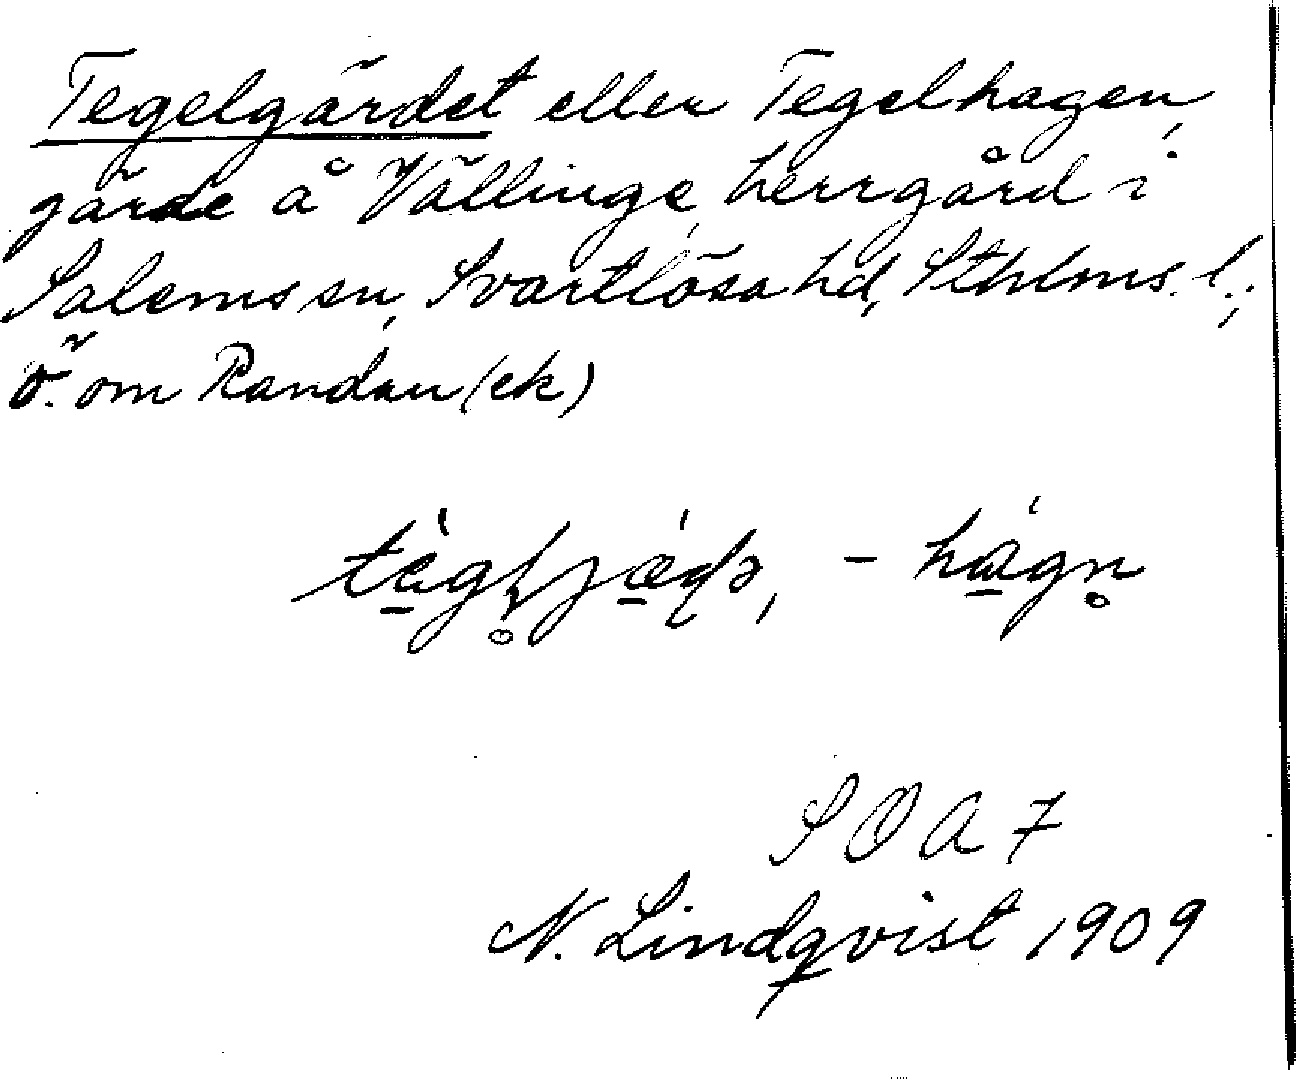 Tegelgärdet eller Tegelhagen,
gärde å Vällinge, herrgård i
Salems sn, Svartlösa hd, Sthlms. l.;
ö. om Randan (ek)
SOA 7
N. Lindqvist 1909